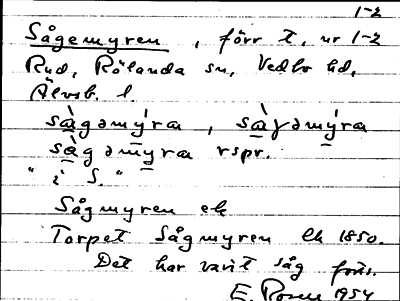 1-2
Sågemyren , förr t. nr 1-2
Rud, Rölanda sn, Vedbo hd,
Älvsb. l.
sàgəmýra , sàɣəmýra
sàgəmyra rspr.
" i S. "
Sågmyren ek
Torpet Sågmyren Ek 1850.
Det har varit såg förr.
E. Rosén 1954